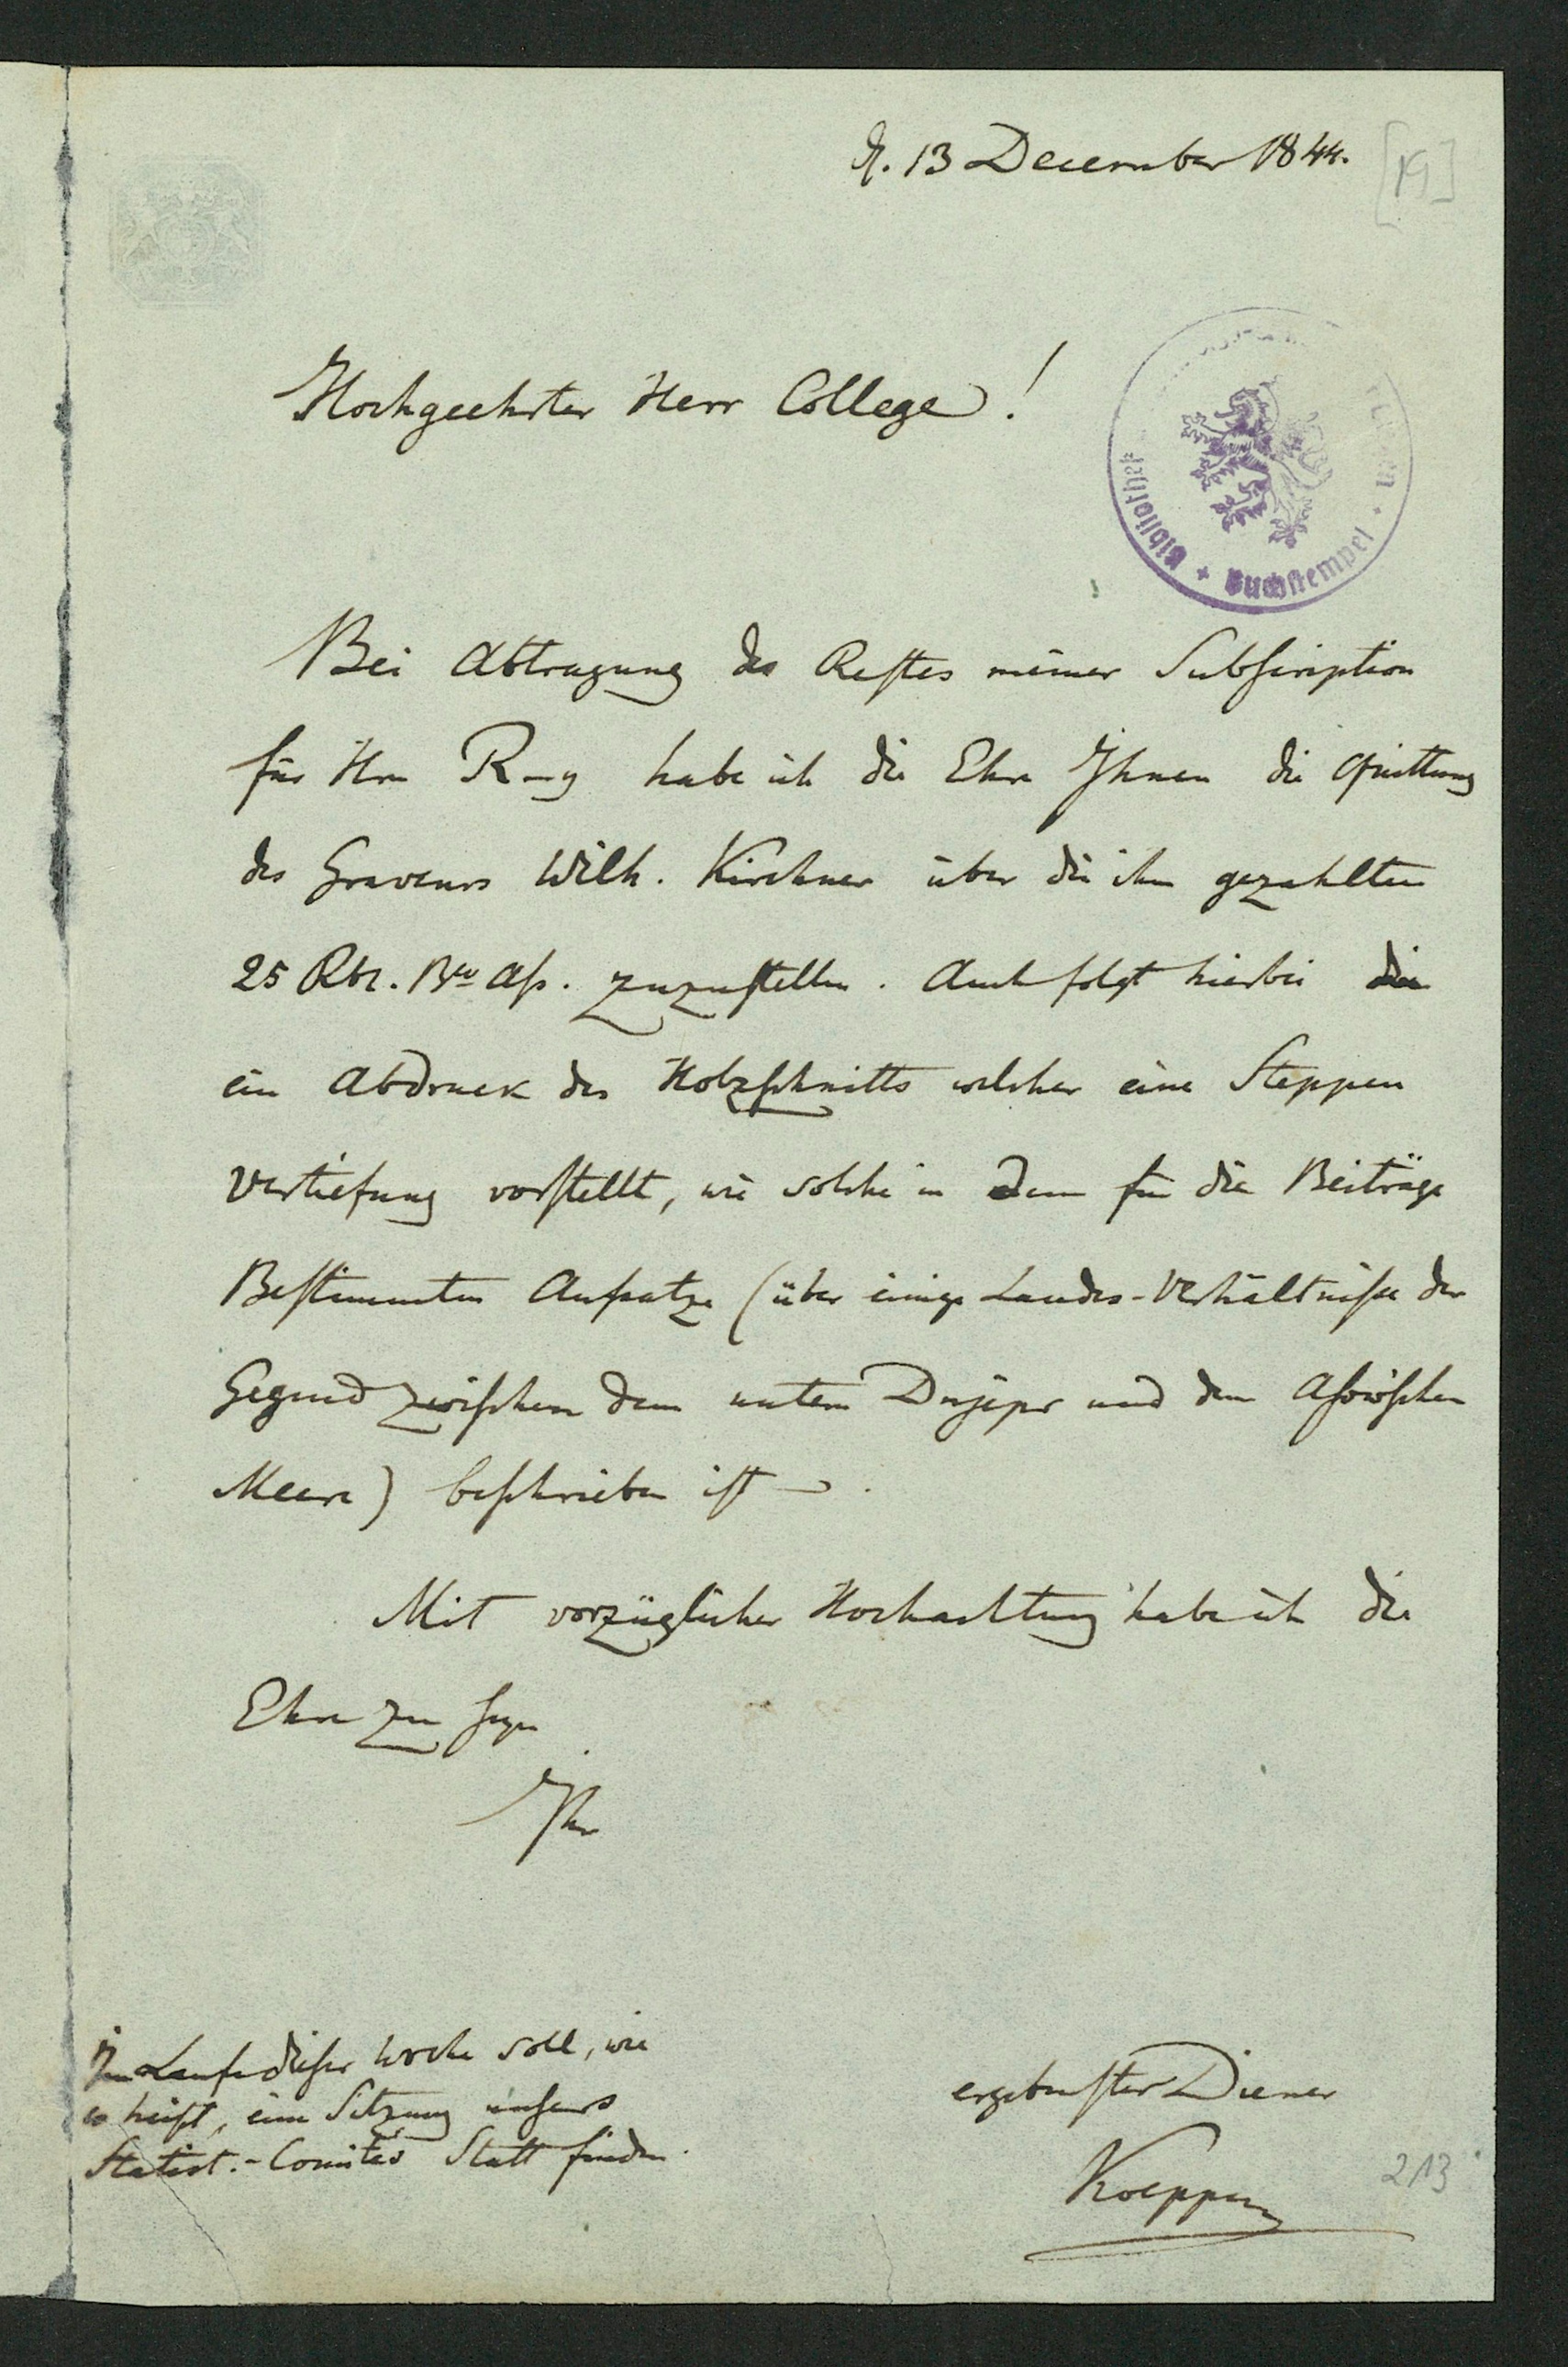 d. 13 December 1844.
[19]
Hochgeehrter Herr College!
Bibliothek + Buchstempel +
Bei Abtragung des Restes meiner Subscription
für Hrn R–y habe ich die Ehre Ihnen die Quittung
des Graveurs Wilh. Kirchner über die ihm gezahlten
25 Rbl. Bco Ass. zuzustellen. Auch folgt hierbei die
ein Abdruck des Holzschnitts welcher eine Steppen
Vertiefung vorstellt, wie solche in dem für die Beiträge
Bestimmten Aufsatze (über einige Landes-Verhältnisse der
Gegend zwischen dem untern Dnjepr und dem Assowschen
Meere) beschrieben ist.
Mit vorzüglicher Hochachtung habe ich die
Ehre zu seyn
Ihr
ergebenster Diener
Koeppen
Im Laufe dieser Woche soll, wie
es heißt, eine Sitzung unsers
Statist.-Comités Statt finden.
213